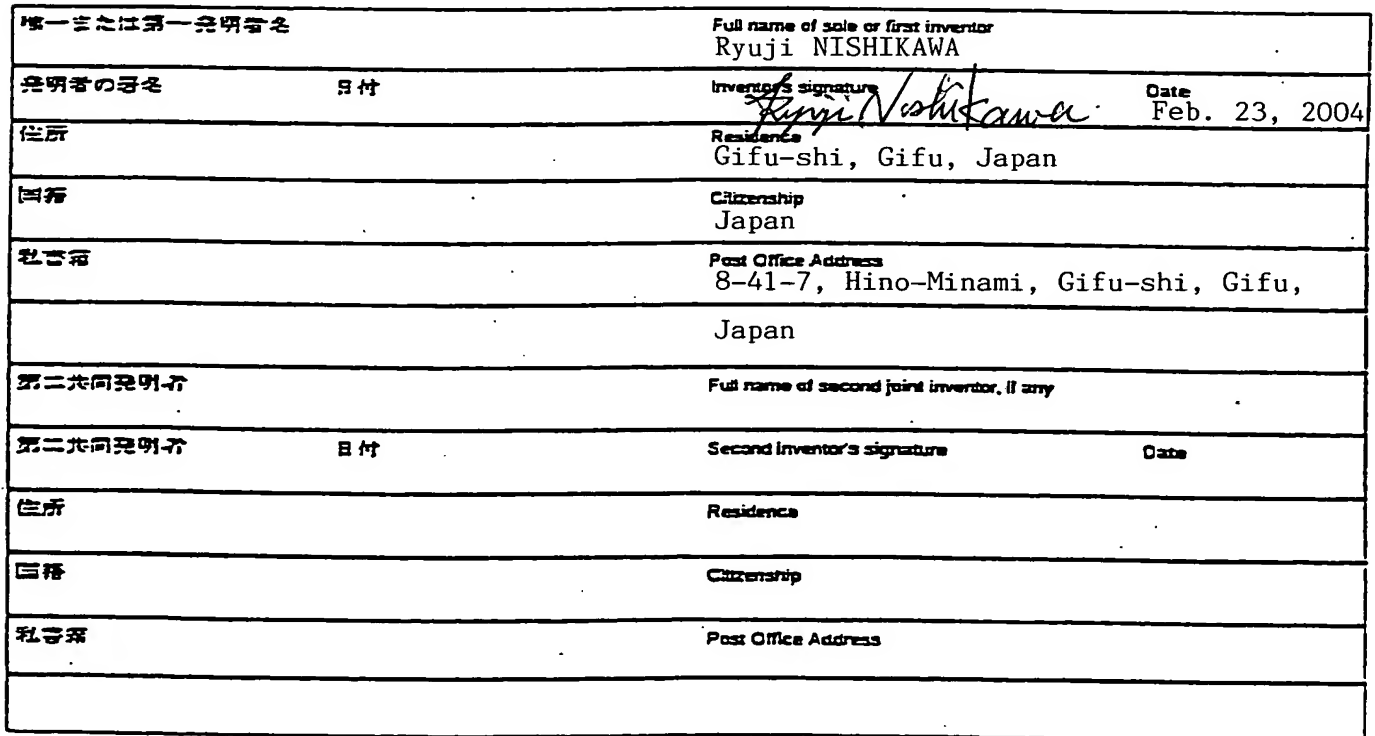 唯一または第一発明者名
Full name of sole or first inventor
Ryuji NISHIKAWA
発明者の署名 日付
Inventor's signature Date
Ryuji Nishikawa Feb. 23, 2004
住所
Residence
Gifu-shi, Gifu, Japan
国籍
Citizenship
Japan
私書箱
Post Office Address
8-41-7, Hino-Minami, Gifu-shi, Gifu,
Japan
第二共同発明者
Full name of second joint inventor, if any
第二共同発明者 日付
Second inventor's signature Date
住所
Residence
国籍
Citizenship
私書箱
Post Office Address